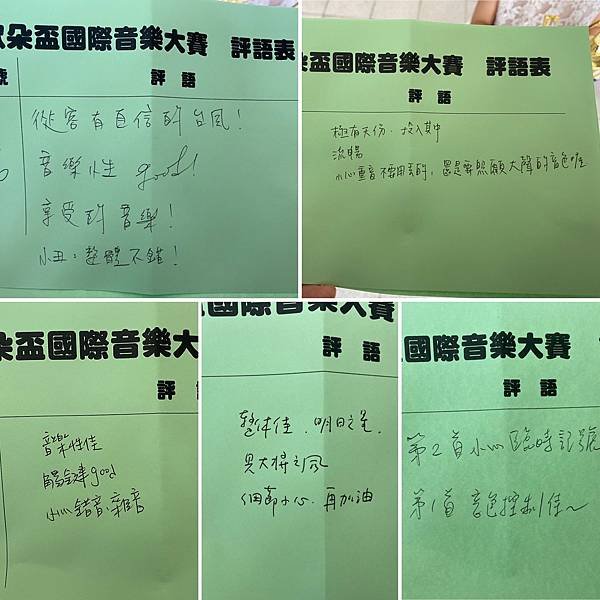 朵盃國際音樂大賽 評語表
號 評語
從容有自信的台風!
音樂性 good!
享受的音樂!
小丑:整體不錯!
朵盃國際音樂大賽 評語表
評語
極有天份、投入其中
流暢
小心重音不要用丟的,還是要照顧大聲的音色喔
朵盃國際音樂大
評語
音樂性佳
觸鍵good
小心錯音、雜音
國際音樂大賽
評語
整体佳、明日之星、
具大將之風
細節小心、再加油
國際音樂大賽
評語
第2首小心臨時記號
第1首音色控制佳~